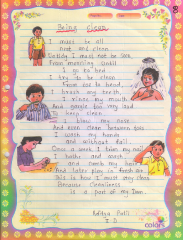 Being Clean
I must be all
neat and clean
So that I must not be sick
From morning until
I go to bed
I try to be clean
From toe to head
I brush my teeth,
I rinse my mouth
And gargle too very loud
To keep clean
I blow my nose
And even clean between toes
I wash my hands
and
Once a week I trim my nail
I bathe and
and comb my hair
And later play in fresh air
This is how I must stay clean
Because Cleanliness
is a part of my
Aditya Patil
colors